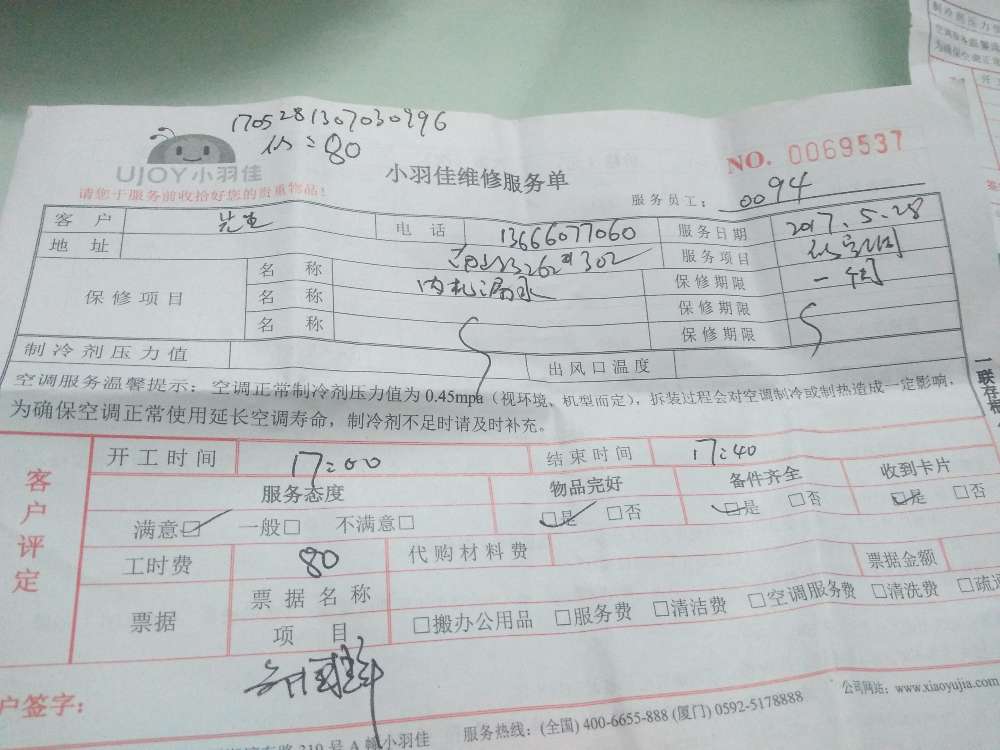 1705281307030996
80
UJOY小羽佳
请您于服务前收拾好您的贵重物品!
小羽佳维修服务单
NO. 0069537
服务员工: 0094
客 户 先生 电 话 13666077060 服务日期 2017.5.28
地 址 302 服务项目
保修项目 名 称 内机漏水 保修期限 一个月
名 称 保修期限
名 称 保修期限
制冷剂压力值 出风口温度
空调服务温馨提示:空调正常制冷剂压力值为 0.45mpa(视环境、机型而定),拆装过程会对空调制冷或制热造成一定影响,
为确保空调正常使用延长空调寿命,制冷剂不足时请及时补充。
一联存根
客户评定
开工时间 17:00 结束时间 17:40
服务态度 物品完好 备件齐全 收到卡片
满意☑ 一般□ 不满意□ ☑是 □否 ☑是 □否 ☑是 □否
工时费 80 代购材料费
票据 票据名称 票据金额
项 目 □搬办公用品 □服务费 □清洁费 □空调服务费 □清洗费 □疏通
户签字:
310 号 A 幢小羽佳 服务热线:(全国) 400-6655-888 (厦门) 0592-5178888 公司网站:www.xiaoyujia.com